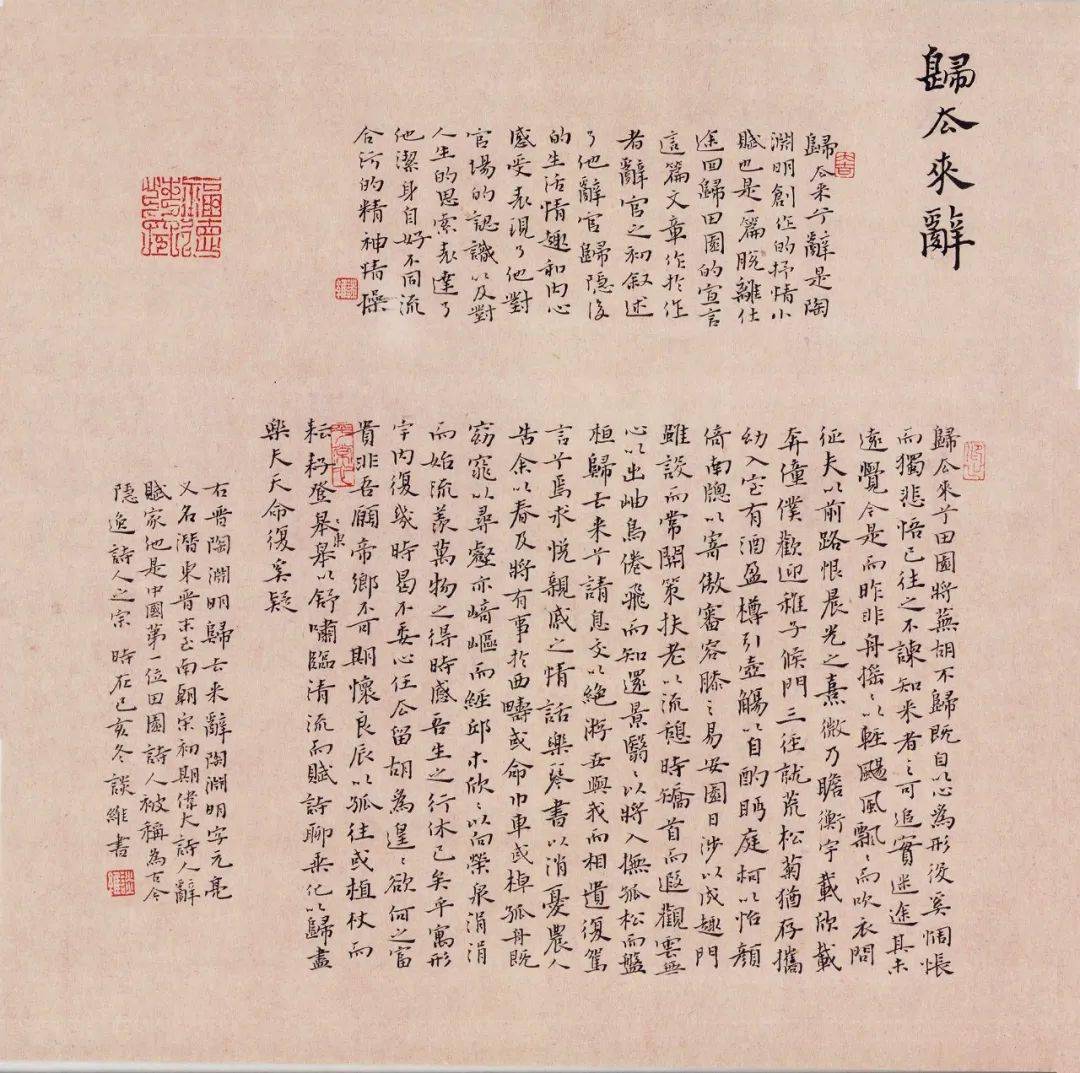 歸去來辭
歸去来兮辭是陶
淵明創作的抒情小
賦也是一篇脱離仕
途回歸田園的宣言
這篇文章作於作
者辭官之初叙述
了他辭官歸隱後
的生活情趣和内心
感受表現了他對
官場的認識以及對
人生的思索表達了
他潔身自好不同流
合污的精神情操
歸去来兮田園將蕪胡不歸既自以心為形役奚惆悵
而獨悲悟已往之不諫知来者之可追實迷途其未
遠覺今是而昨非舟摇〻以輕颺風飄〻而吹衣問
征夫以前路恨晨光之熹微乃瞻衡宇載欣載
奔僮僕歡迎稚子候門三徑就荒松菊猶存攜
幼入室有酒盈樽引壺觴以自酌眄庭柯以怡顔
倚南牕以寄傲審容膝之易安園日涉以成趣門
雖設而常關策扶老以流憩時矯首而遐觀雲無
心以出岫鳥倦飛而知還景翳〻以將入撫孤松而盤
桓歸去来兮請息交以絶游世與我而相遺復駕
言兮焉求悦親戚之情話樂琴書以消憂農人
告余以春及將有事於西疇或命巾車或棹孤舟既
窈窕以尋壑亦崎嶇而經邱木欣〻以向榮泉涓涓
而始流羡萬物之得時感吾生之行休已矣乎寓形
宇内復幾時曷不委心任去留胡為遑〻欲何之富
貴非吾願帝鄉不可期懷良辰以孤往或植杖而
耘耔登皋皋以舒嘯臨清流而賦詩聊乘化以歸盡
東
樂夫天命復奚疑
右晋陶淵明歸去来辭陶淵明字元亮
又名潛東晋末至南朝宋初期偉大詩人辭
賦家他是中國第一位田園詩人被稱為古今
隱逸詩人之宗 時在己亥冬談維書